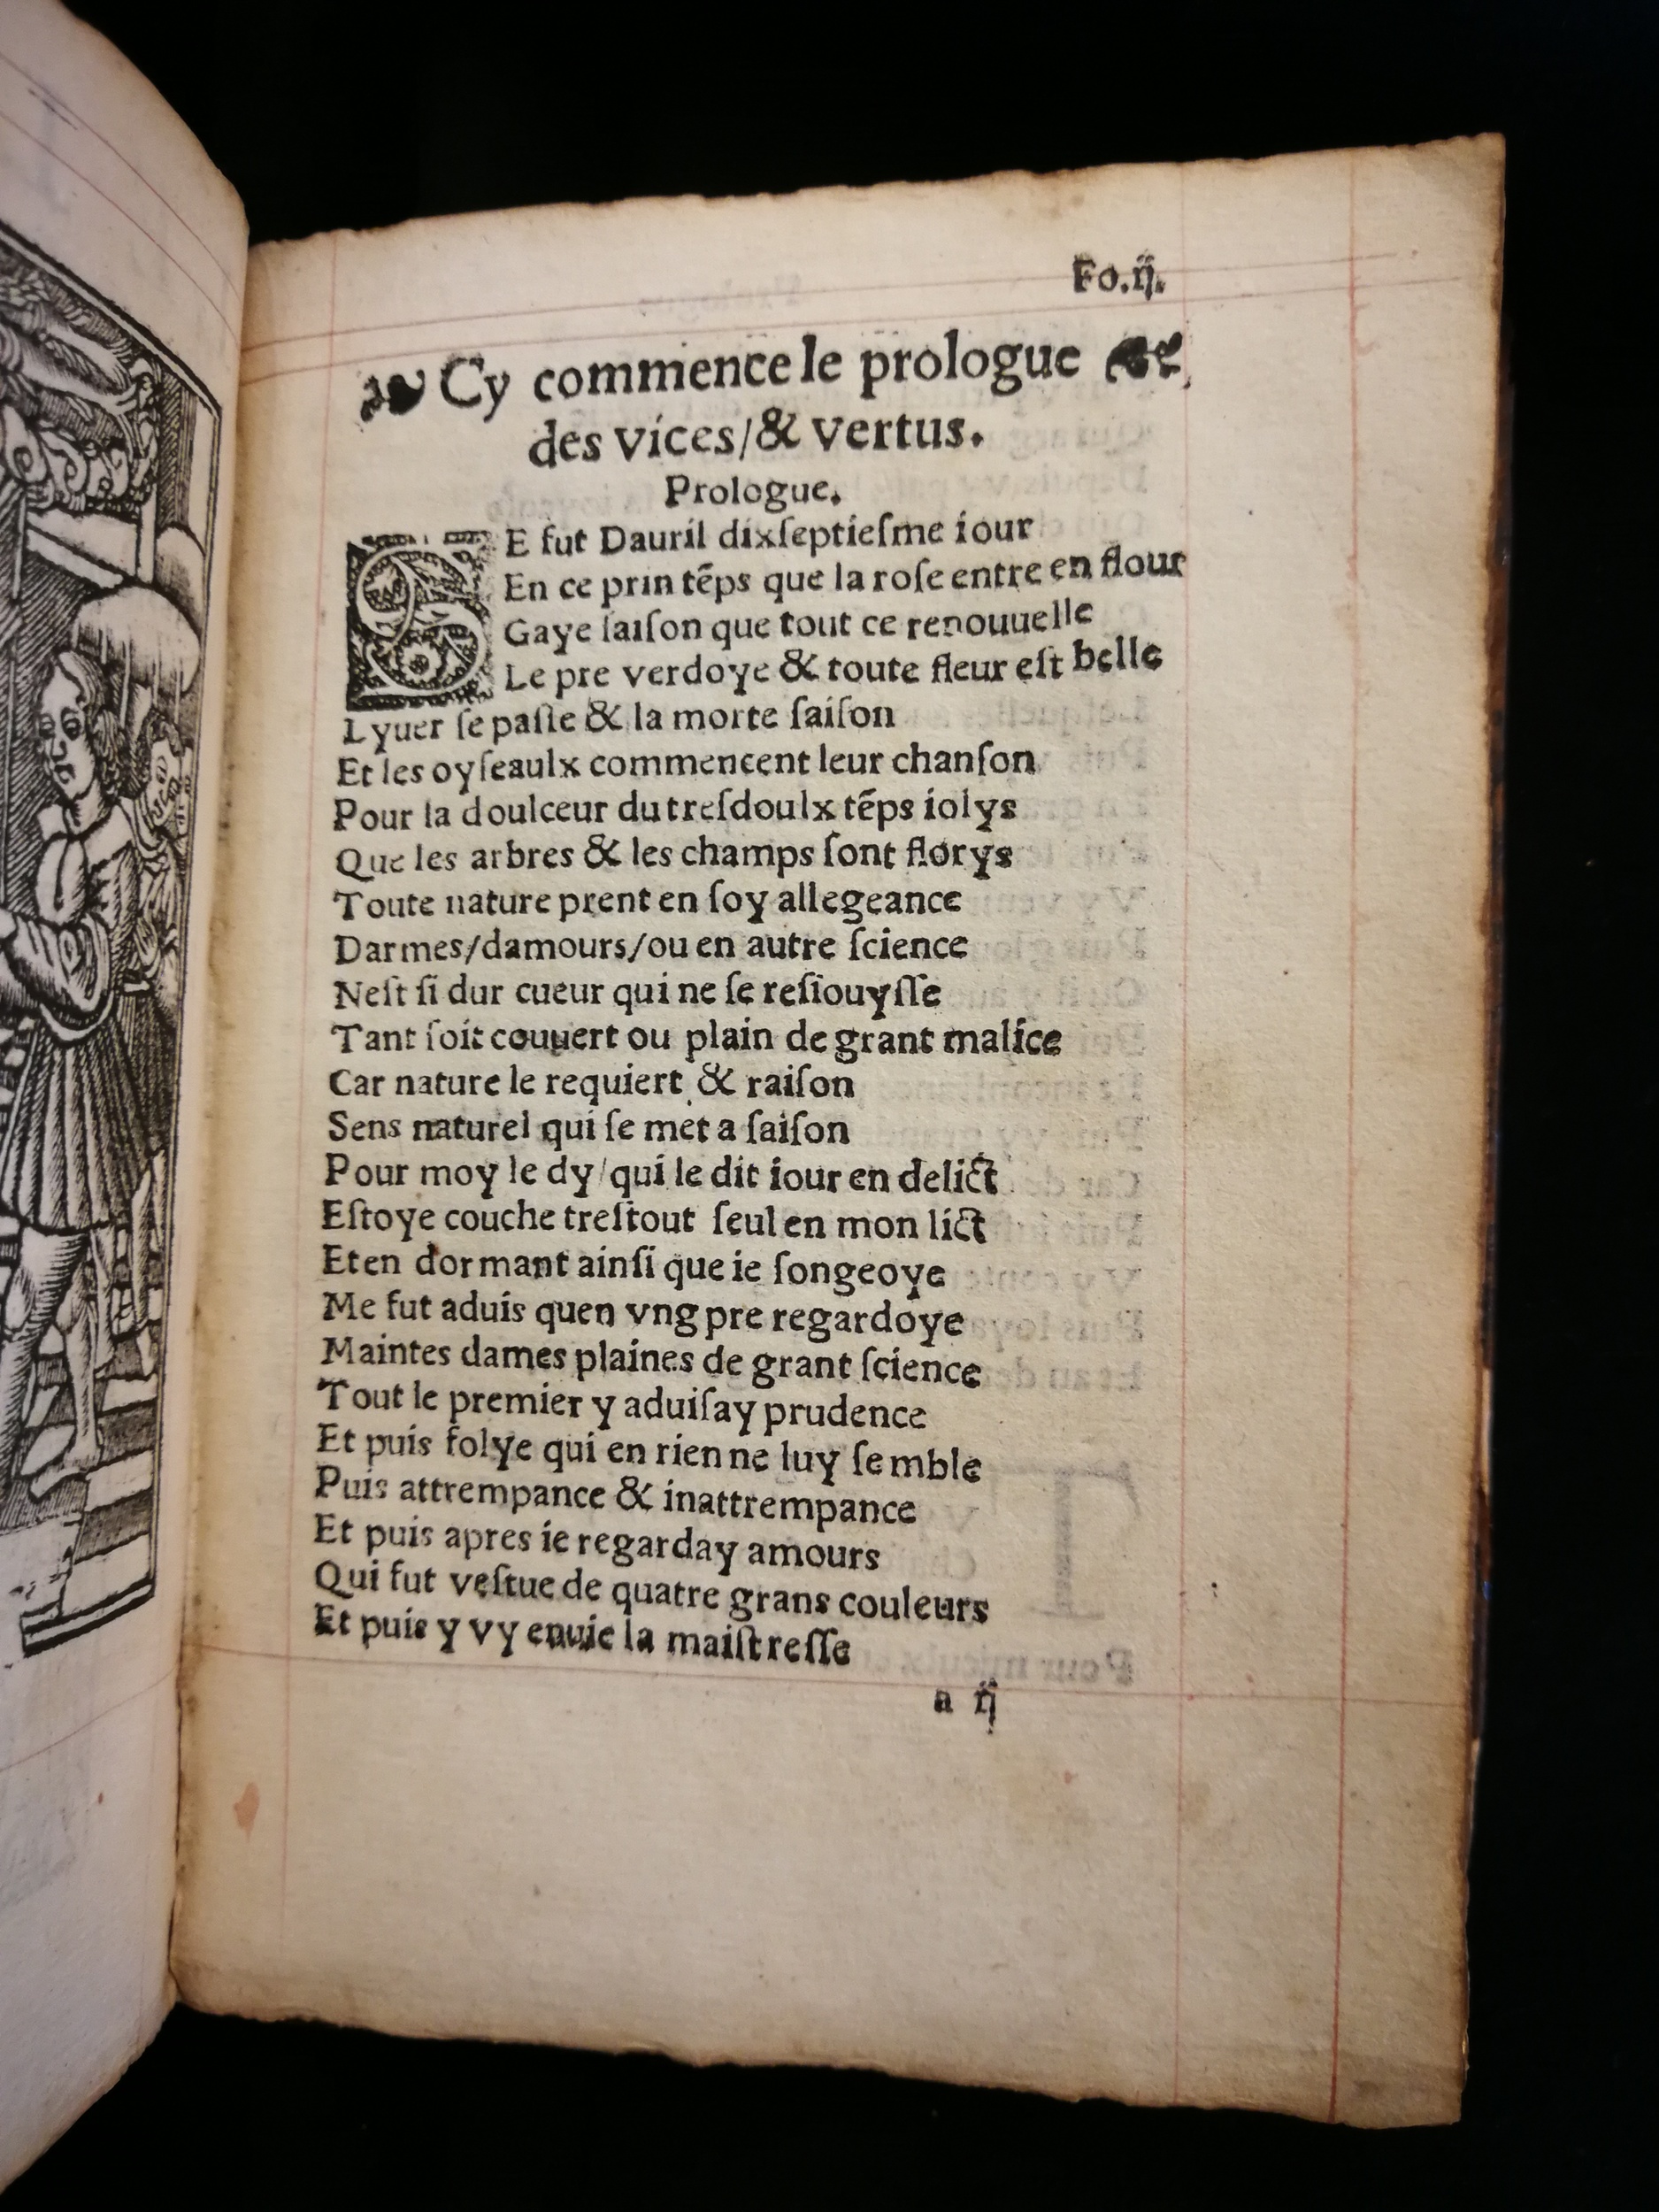 Fo.ij.
Cy commence le prologue
des vices/& vertus.
Prologue.
E fut Dauril dixſeptieſme iour
En ce prin tēps que la roſe entre en flour
Gaye ſaiſon que tout ce renouuelle
Le pre verdoye & toute fleur eſt belle
Lyuer ſe paſſe & la morte ſaiſon
Et les oyſeaulx commencent leur chanſon
Pour la doulceur du treſdoulx tēps iolys
Que les arbres & les champs ſont florys
Toute nature prent en ſoy allegeance
Darmes/damours/ou en autre ſcience
Neſt ſi dur cueur qui ne ſe reſiouyſſe
Tant ſoit couuert ou plain de grant malice
Car nature le requiert & raiſon
Sens naturel qui ſe met a ſaiſon
Pour moy le dy/qui le dit iour en delict
Eſtoye couche treſtout ſeul en mon lict
Et en dormant ainſi que ie ſongeoye
Me fut aduis quen vng pre regardoye
Maintes dames plaines de grant ſcience
Tout le premier y aduiſay prudence
Et puis folye qui en rien ne luy ſemble
Puis attrempance & inattrempance
Et puis apres ie regarday amours
Qui fut veſtue de quatre grans couleurs
Et puis y vy enuie la maiſtreſſe
a ij